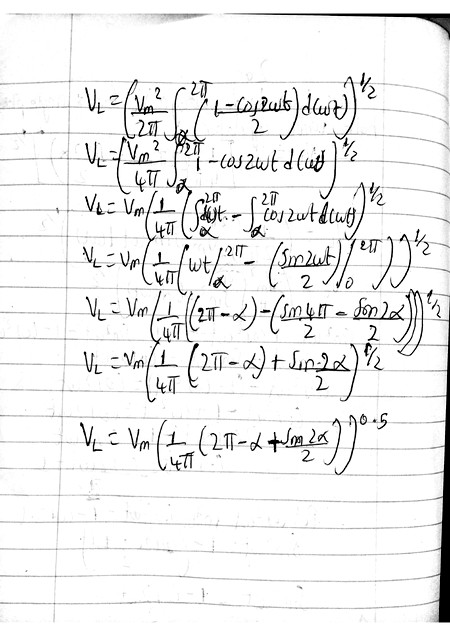 V_L = (V_m²/2π ∫_α^2π (1-cos2ωt/2) d(ωt))^1/2
V_L = (V_m²/4π ∫_α^2π 1 - cos2ωt d(ωt))^1/2
V_L = V_m (1/4π (∫_α^2π dωt - ∫_α^2π cos2ωt d(ωt))^1/2
V_L = V_m (1/4π (ωt/_α^2π - (Sin2ωt/2)/_0^2π))^1/2
V_L = V_m (1/4π ((2π-α) - (Sin4π/2 - Sin2α/2)))^1/2
V_L = V_m (1/4π (2π-α) + Sin2α/2)^1/2
V_L = V_m (1/4π (2π-α + Sin2α/2))^0.5